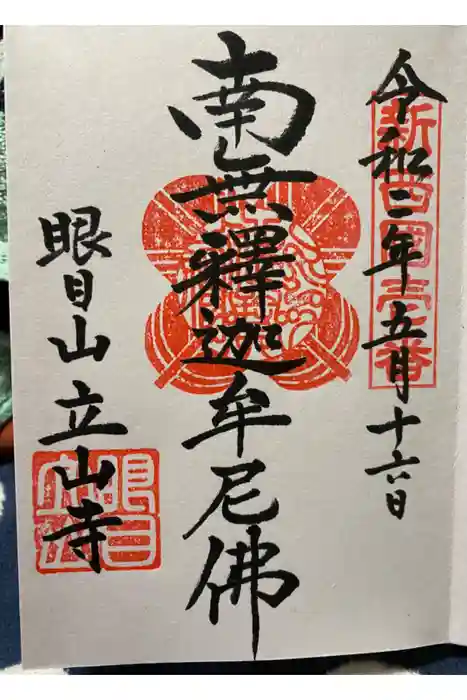 令和二年五月十六日
新四国三七番
南無釋迦牟尼佛
眼目山立山寺